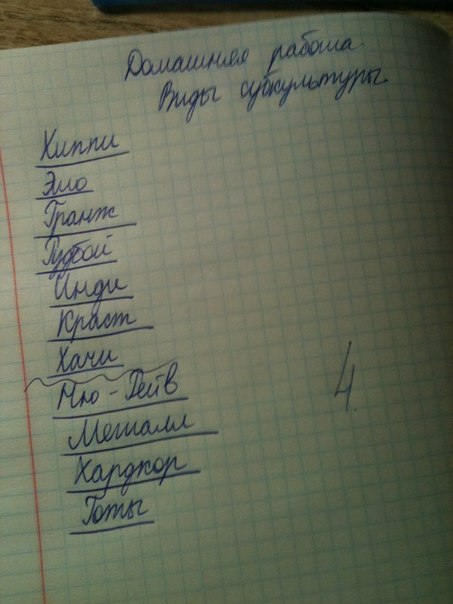 Домашняя работа
Виды субкультуры
Хиппи
Эмо
Гранж
Рудбой
Инди
Краст
Хачи
Ню-Вейв
Металл
Хардкор
Готы
4